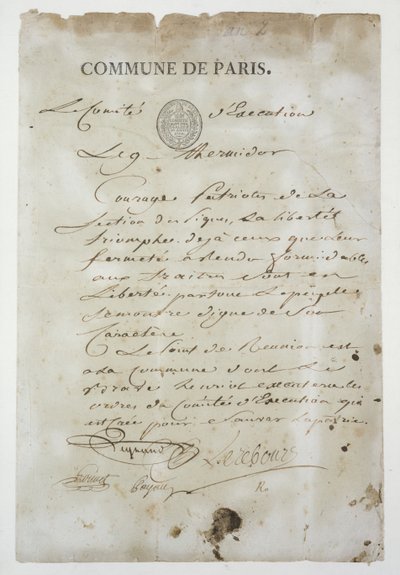 an 2
COMMUNE DE PARIS.
Le Comité d'Execution
Le 9 thermidor
Courage Patriotes de La
Section des Piques, La liberté
triomphe. deja ceux que leur
fermeté a rendu formidables
aux traitres sont en
Liberté, partout Le peuple
se montre digne de son
Caractere
Le Point de Reunion est
a La Commune dont Le
brave henriot executera les
ordres du Comité d'Execution qui
est Créé pour sauver La patrie.
Legrand Lerebours
Louvet Payan R.